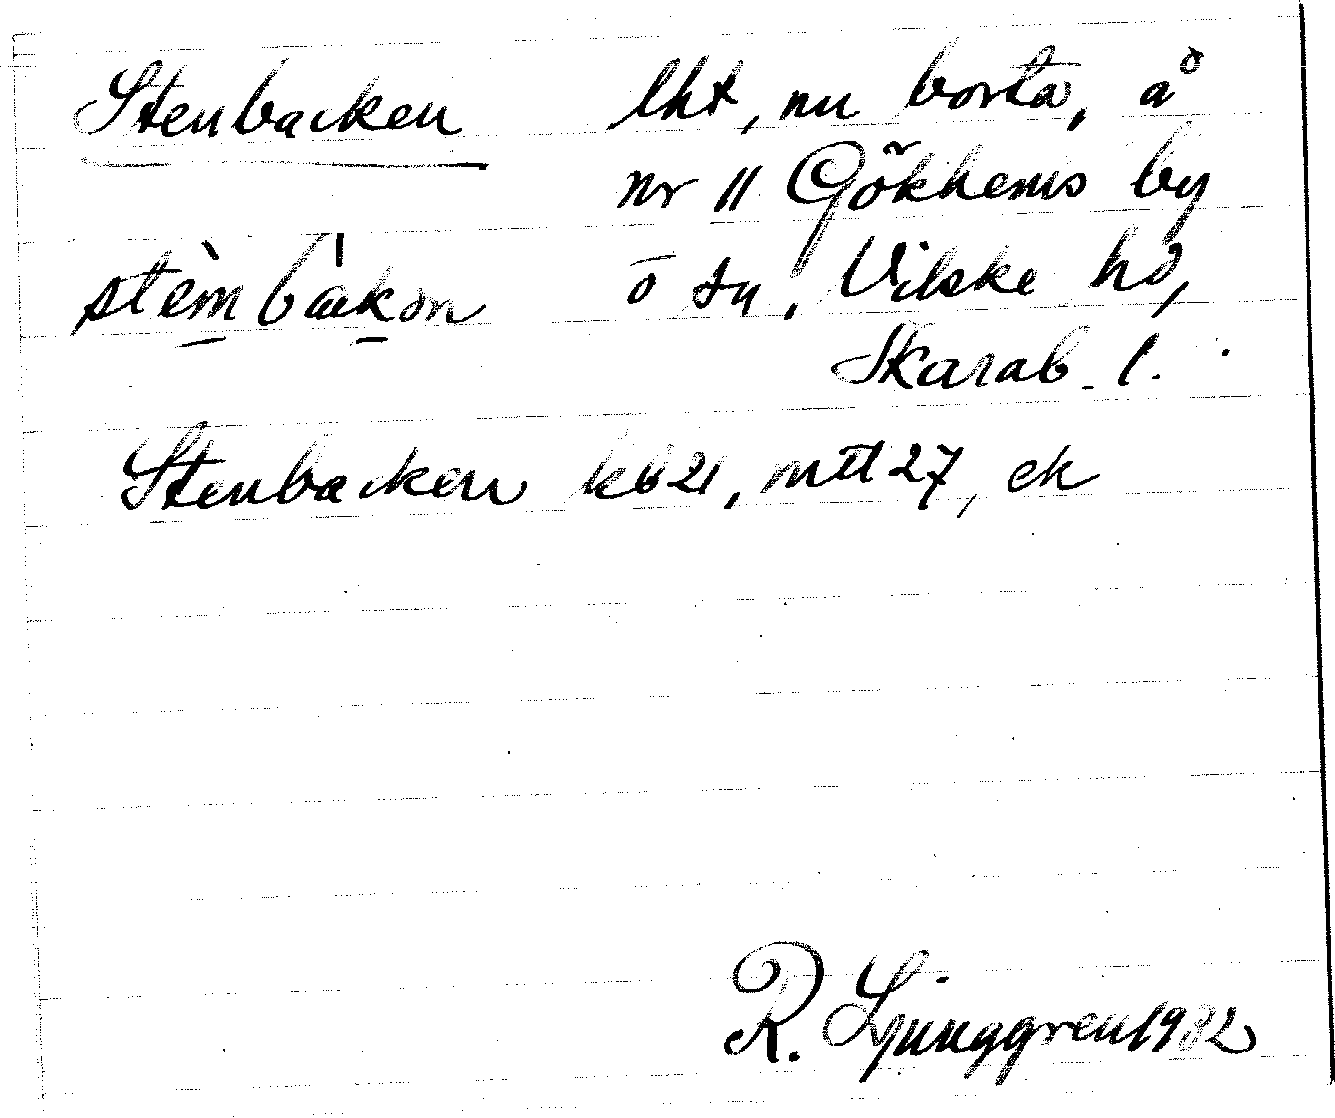 Stenbacken lht, nu borta, å
nr 11 Gökhems by
stèmbákən o sn, Vilske hd,
Skarab. l.
Stenbacken kb 21, mtl 27, ek
R. Ljunggren 1982